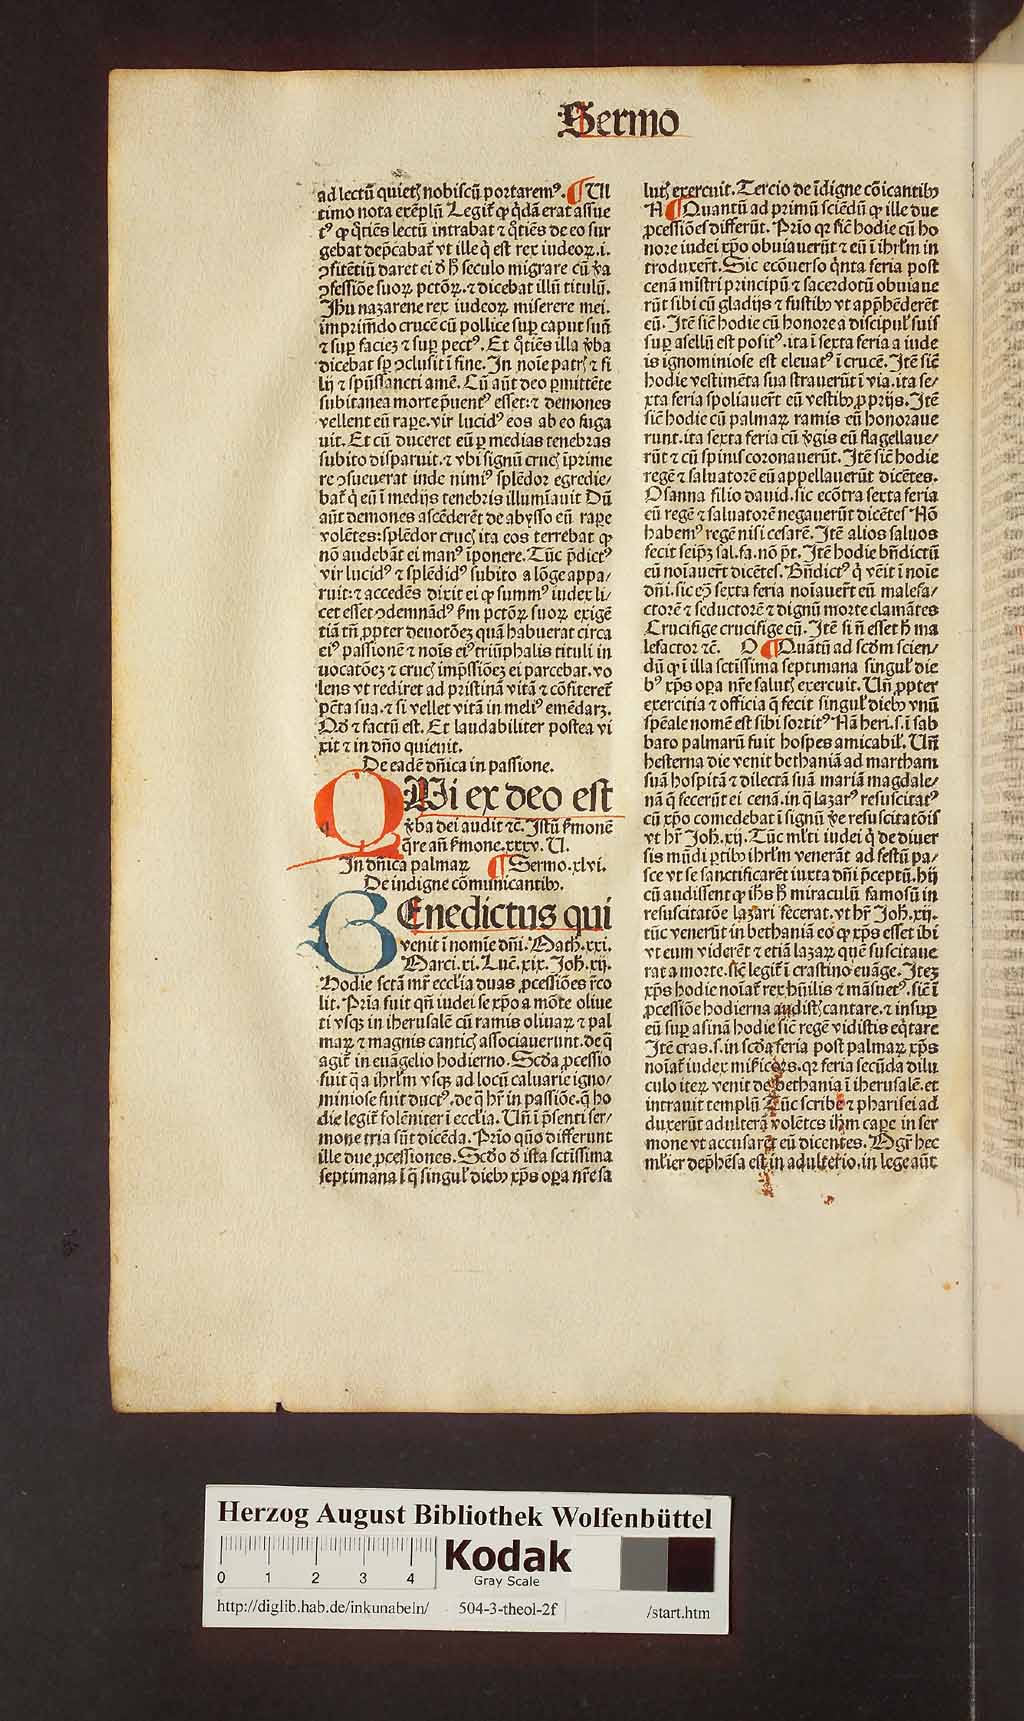 Sermo
ad lectū quietꝭ nobiscū portaremꝰ. ¶ Ul
timo nota exēplū Legit̄ ꝙ q̇dā erat assue
tꝰ ꝙ q̇tiēs lectū intrabat ⁊ q̇tiēs de eo sur
gebat dep̄cabat̄ vt ille q̇ est rex iudeoꝝ .i.
ꝯfitētiū daret ei ð h̄ seculo migrare cū v̄a
ꝯfessiōe suoꝝ pctōꝝ. ⁊ dicebat illū titulū.
Jhū nazarene rex iudeoꝝ miserere mei.
imprimēdo crucē cū pollice suꝑ caput suū
⁊ suꝑ faciēʒ ⁊ suꝑ pectꝰ. Et q̇tiēs illa v̄ba
dicebat sꝑ ꝯclusit ī fine. In noīe patrꝭ ⁊ fi
lij ⁊ sp̄ūssancti amē. Cū aūt deo ꝑmittēte
subitanea morte p̄uentꝰ esset: ⁊ demones
vellent eū raꝑe. vir lucidꝰ eos ab eo fuga
uit. Et cū duceret eū ꝑ medias tenebras
subito disparuit. ⁊ vbi signū crucꝭ īprime
re ꝯsueuerat inde nimiꝰ splēdor egredie⸗
bat̄ q̇ eū ī medijs tenebris illumīauit Dū
aūt demones ascēderēt de abysso eū raꝑe
volētes: splēdor crucꝭ ita eos terrebat ꝙ
nō audebāt ei manꝰ īponere. Tūc p̄dictꝰ
vir lucidꝰ ⁊ splēdidꝰ subito a lōge appa⸗
ruit: ⁊ accedēs dixit ei ꝙ summꝰ iudex li⸗
cet esset ꝯdemnādꝰ s̄m pctōꝝ suoꝝ exigē
tiā tn̄ ꝓpter deuotōeʒ quā habuerat circa
eiꝰ passionē ⁊ noīs eiꝰ triūphalis tituli in
uocatōeʒ ⁊ crucꝭ imp̄ssiōeʒ ei parcebat. vo
lens vt rediret ad pristinā vitā ⁊ cōfiteret̄
pctā sua. ⁊ si vellet vitā in meliꝰ emēdarʒ.
Qð ⁊ factū est. Et laudabiliter postea vi
xit ⁊ in dn̄o quieuit.
De eadē dn̄ica in passione.
QUi ex deo est
v̄ba dei audit ⁊c. Istū s̄monē
q̄re an̄ s̄mone. xxxv. U.
In dn̄ica palmaꝝ ¶ Sermo. xlvi.
De indigne cōmunicantibꝫ.
BEnedictus qui
venit ī nomīe dn̄i. Math. xxi.
Marci. xi. Luc̄. xix. Joh̄. xij.
Hodie sctā mr̄ eccl̄ia duas ꝓcessiōes r̄co
lit. Prīa fuit qn̄ iudei se xp̄o a mōte oliue
ti vsqꝫ in iherusalē cū ramis oliuaꝝ ⁊ pal
maꝝ ⁊ magnis canticꝭ associauerunt. de q̄
agit̄ in euāgelio hodierno. Scða ꝓcessio
fuit q̄ a ihrl̄m vsqꝫ ad locū caluarie igno⸗
miniose fuit ductꝰ. de q̄ hr̄ in passiōe. q̄ ho
die legit̄ solēniter ī eccl̄ia. Un̄ ī p̄senti ser⸗
mone tria sūt dicēda. Prīo quō differunt
ille due ꝓcessiones. Scðo ð ista sctīssima
septimana ī q̄ singul̄ diebꝫ xp̄s oꝑa nr̄e sa
lutꝭ exercuit. Tercio de īdigne cōicantibꝫ
N ¶ Quantū ad primū sciēdū ꝙ ille due
ꝓcessiōes differūt. Prīo qꝛ sic̄ hodie cū ho
nore iudei xp̄o obuiauerūt ⁊ eū ī ihrl̄m in
troduxer̄t. Sic ecōuerso q̇nta feria post
cenā mīstri principū ⁊ sacerdotū obuiaue
rūt sibi cū gladijs ⁊ fustibꝫ vt app̄hēderēt
eū. Itē sic̄ hodie cū honore a discipul̄ suis
suꝑ asellū est positꝰ. ita ī sexta feria a iude
is ignominiose est eleuatꝰ ī crucē. Itē sic̄
hodie vestimēta sua strauerūt ī via. ita se⸗
xta feria spoliauer̄t eū vestibꝫ ꝓprijs. Itē
sic̄ hodie cū palmaꝝ ramis eū honoraue
runt. ita sexta feria cū v̄gis eū flagellaue⸗
rūt ⁊ cū spinis coronauerūt. Itē sic̄ hodie
regē ⁊ saluatorē eū appellauerūt dicētes.
Osanna filio dauid. sic ecōtra sexta feria
eū regē ⁊ saluatorē negauerūt dicētes Nō
habemꝰ regē nisi cesarē. Itē alios saluos
fecit seip̄ʒ sal. fa. nō p̄t. Itē hodie bn̄dictū
eū noīauer̄t dicētes. Bn̄dictꝰ q̇ vēit ī noīe
dn̄i. sic eꝫ sexta feria noīauer̄t eū malefa⸗
ctorē ⁊ seductorē ⁊ dignū morte clamātes
Crucifige crucifige eū. Itē si n̄ esset h̄ ma
lefactor ⁊c. O ¶ Quātū ad scðm scien⸗
dū ꝙ ī illa sctīssima septimana singul̄ die
bꝰ xp̄s oꝑa nr̄e salutꝭ exercuit. Un̄ ꝓpter
exercitia ⁊ officia q̄ fecit singul̄ diebꝫ vnū
sp̄eale nomē est sibi sortitꝰ Nā heri. s. ī sab
bato palmarū fuit hospes amicabil̄. Un̄
hesterna die venit bethaniā ad martham
suā hospitā ⁊ dilectā suā mariā magdale⸗
nā q̄ fecerūt ei cenā. in q̄ lazarꝰ resuscitatꝰ
cū xp̄o comedebat ī signū v̄e resuscitatōis
vt hr̄ Joh̄. xij. Tūc ml̄ti iudei q̇ de diuer
sis mūdi ꝑtibꝫ ihrl̄m venerāt ad festū pa⸗
sce vt se sanctificarēt iuxta dn̄i p̄ceptū. hij
cū audissent ꝙ ih̄s h̄ miraculū famosū in
resuscitatōe lazari fecerat. vt hr̄ Joh̄. xij.
tūc venerūt in bethaniā eo ꝙ xp̄s esset ibi
vt eum viderēt ⁊ etiā lazaꝝ quē suscitaue
rat a morte. sic̄ legit̄ ī crastino euāge. Iteʒ
xp̄s hodie noīat̄ rex hūilis ⁊ māsuetꝰ. sic̄ ī
ꝓcessiōe hodierna audistꝭ cantare. ⁊ insuꝑ
eū suꝑ asinā hodie sic̄ regē vidistis eq̇tare
Itē cras. s. in scða feria post palmaꝝ xp̄s
noīat̄ iudex mīsicors. qꝛ feria secūda dilu
culo iteꝝ venit de bethania ī iherusalē. et
intrauit templū Tūc scribe ⁊ pharisei ad
duxerūt adulterā volētes ih̄m caꝑe in ser
mone vt accusarēt eū dicentes. Mgr̄ hec
ml̄ier dep̄hēsa est in adulterio. in lege aūt
Herzog August Bibliothek Wolfenbüttel
0 1 2 3 4
Kodak
Gray Scale
http://diglib.hab.de/inkunabeln/ 504-3-theol-2f /start.htm